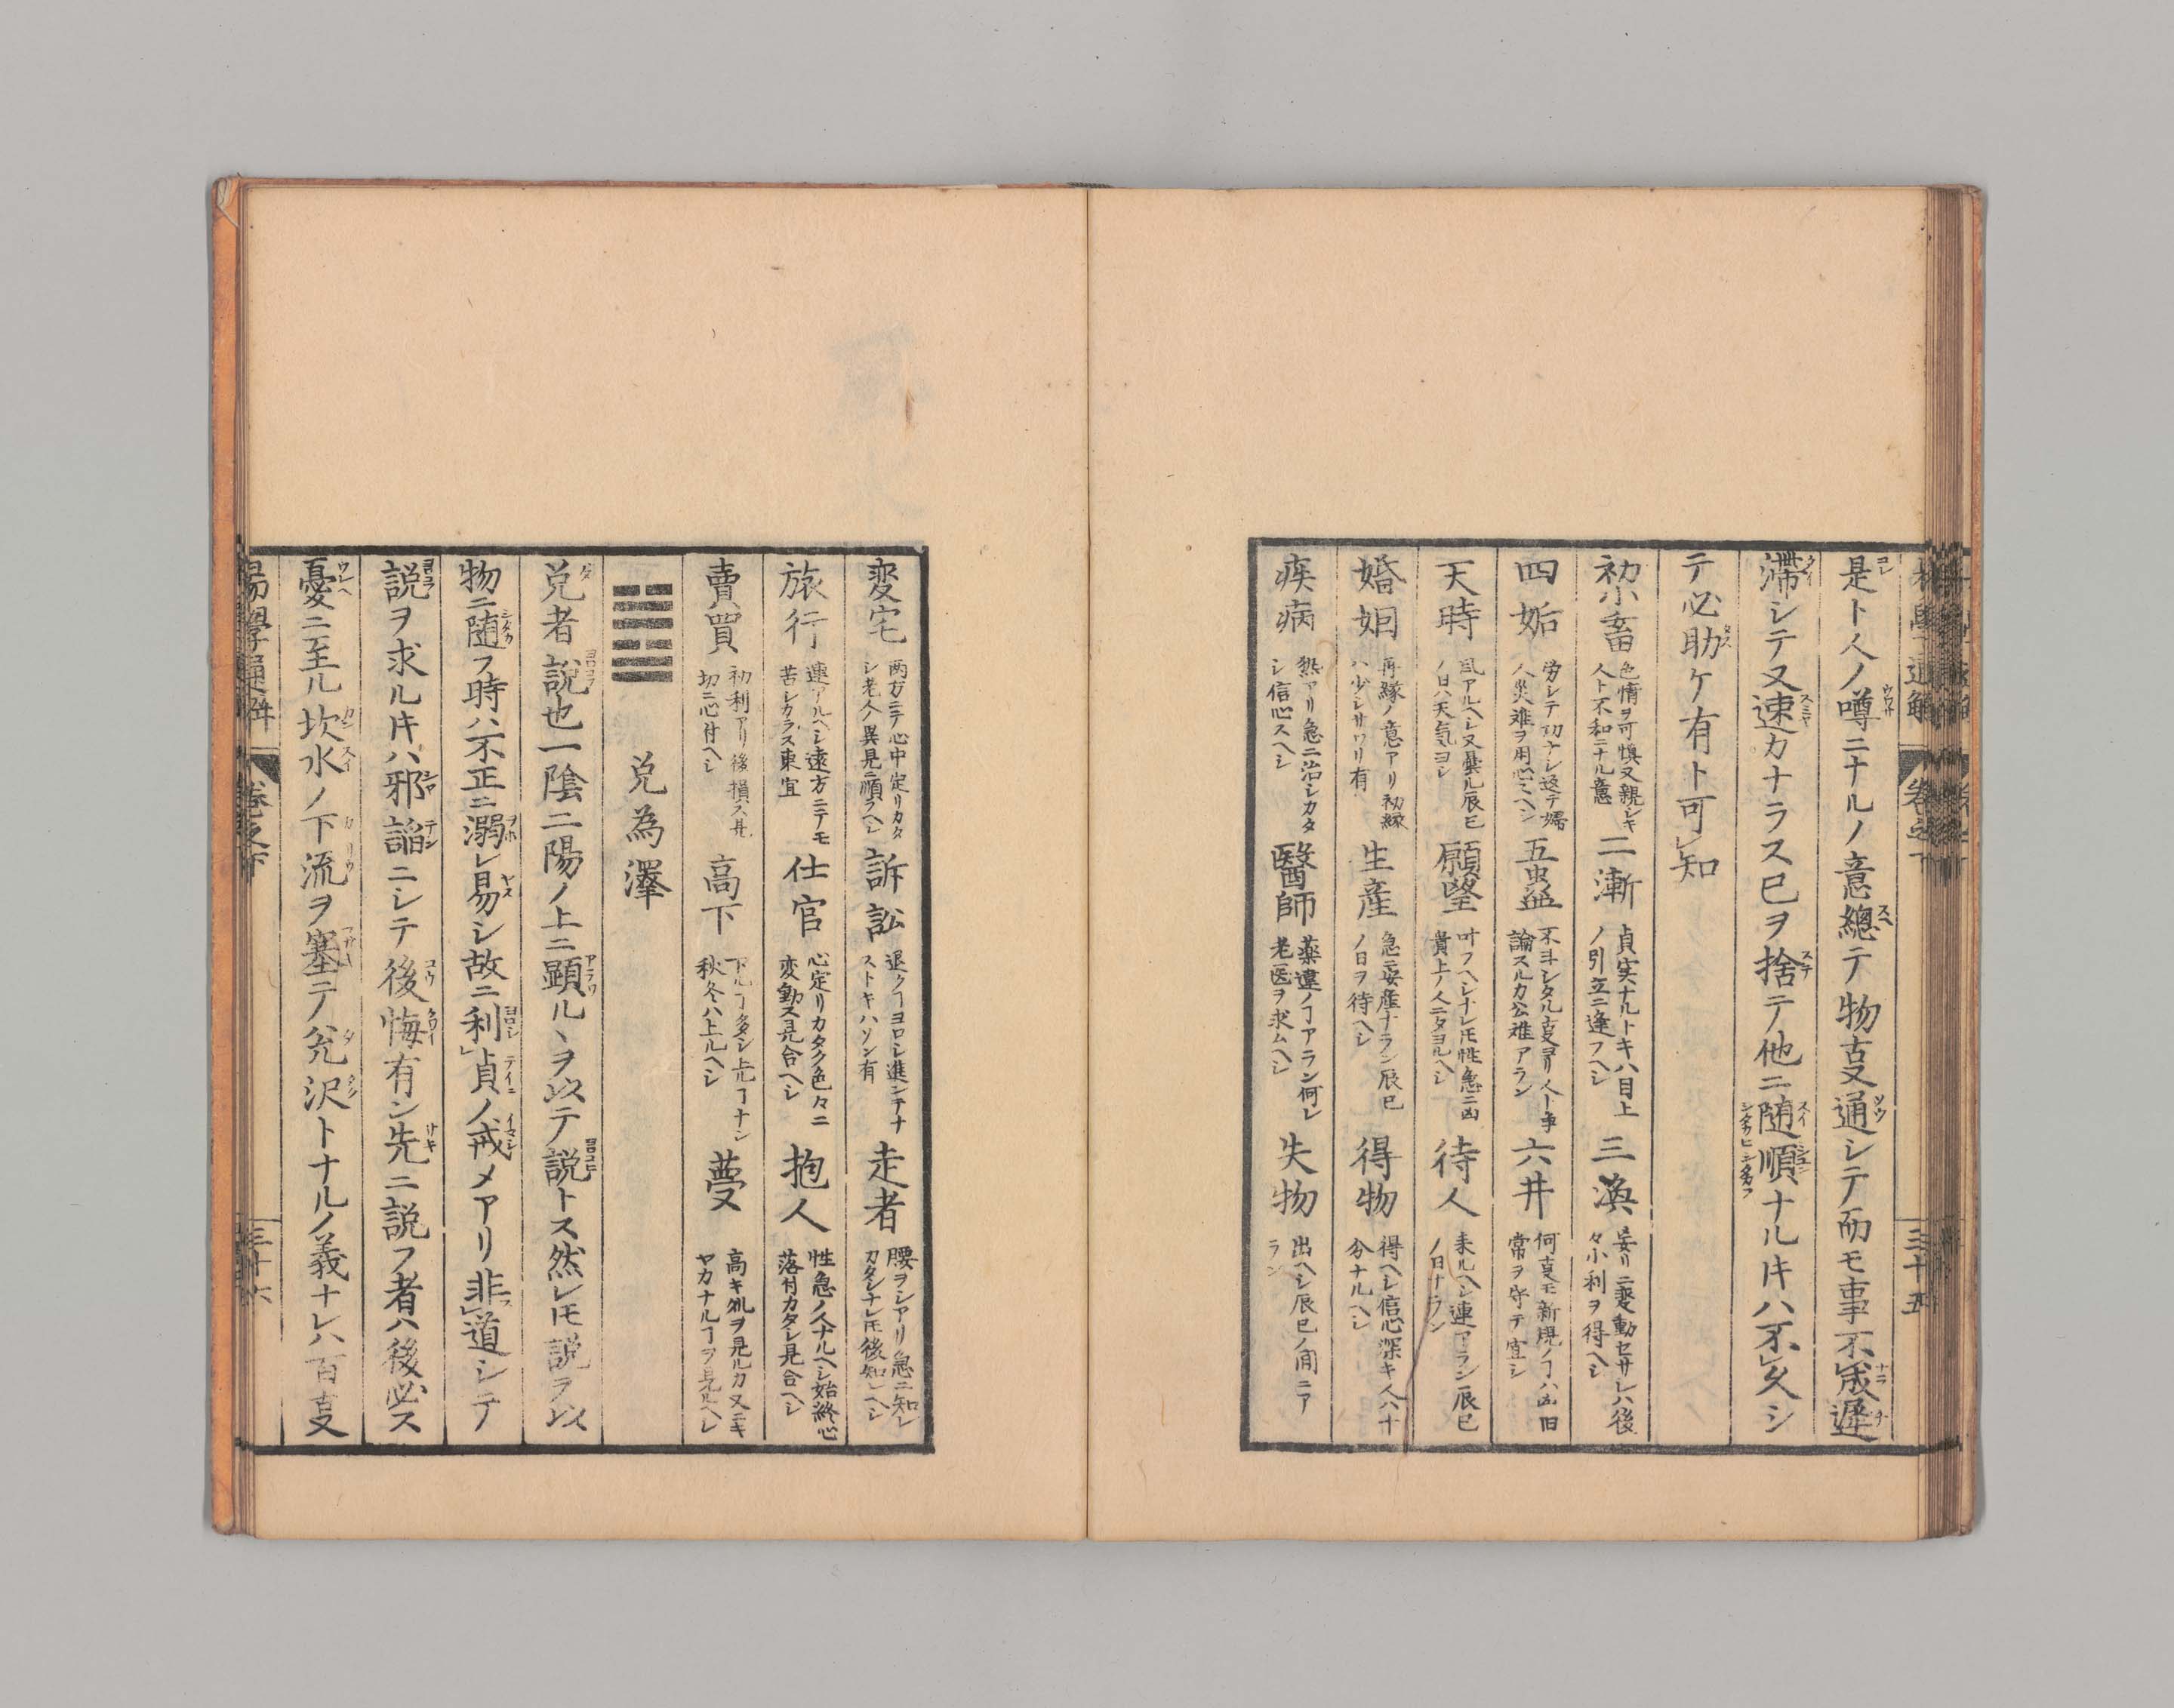 是ト人ノ噂ニナルノ意總テ物叓通シテ而モ事不㆑成遲
滯シテ又速カナラス已ヲ捨テ他ニ隨順ナル𪜈ハ不㆑久シ
テ必助ケ有ト可㆑知
初小畜 色情ヲ可慎又親シキ人ト不和ニナル意 二漸 貞実ナルトキハ目上ノ引立ニ逢フヘシ 三渙 妄リニ変動セサレハ後々小利ヲ得ヘシ
四姤 労シテ功ナシ返テ婦人災難ヲ用心スヘシ 五蛊 不ヨシタル叓ヨリ人ト事論スルカ公難アラン 六井 何叓モ新規ノヿハ凶旧常ヲ守テ宜シ
天時 風アルヘシ又曇ル辰巳ノ日ハ天気ヨシ 願望 叶フヘシナレ𪜈性急ニ凶貴上ノ人ニタヨルヘシ 待人 来ルヘシ連アラン辰巳ノ日ナラン
婚姻 再縁ノ意アリ初縁ハ少シサワリ有 生産 急ニ安産ナラン辰巳ノ日ヲ待ヘシ 得物 得ヘシ信心深キ人ハ十分ナルヘシ
疾病 熱アリ急ニ治シカタシ信心スヘシ 醫師 薬違ノヿアラン何レ老医ヲ求ムヘシ 失物 出ヘシ辰巳ノ間ニアラン
三十五
変宅 両方ニテ心中定リカタシ老人ノ異見ニ順フヘシ 訴訟 退クヿヨロシ進ンテナストキハソン有 走者 腰ヲシアリ急ニ知レカタシナレ𪜈後知レヘシ
旅行 連アルヘシ遠方ニテモ苦シカラス東宜 仕官 心定リカタク色々ニ変動ス見合ヘシ 抱人 性急ノ人ナルヘシ始終心落付カタシ見合ヘシ
賣買 初利アリ後損ス其切ニ心付ヘシ 高下 下ルヿ多シ上ルヿナシ秋冬ハ上ルヘシ 夢 高キ処ヲ見ルカ又ニキヤカナルヿヲ見ルヘシ
兌為澤
兌者説也一陰二陽ノ上ニ顕ルヽヲ以テ説トス然レ𪜈説ヲ以
物ニ随ス時ハ不正ニ溺レ易シ故ニ利㆑貞ノ戒メアリ非㆑道シテ
説ヲ求ル𪜈ハ邪諂ニシテ後悔有ン先ニ説フ者ハ後必ス
憂ニ至ル坎水ノ下流ヲ塞テ兌沢トナルノ義ナレハ百叓
易學通解 卷之下 三十六